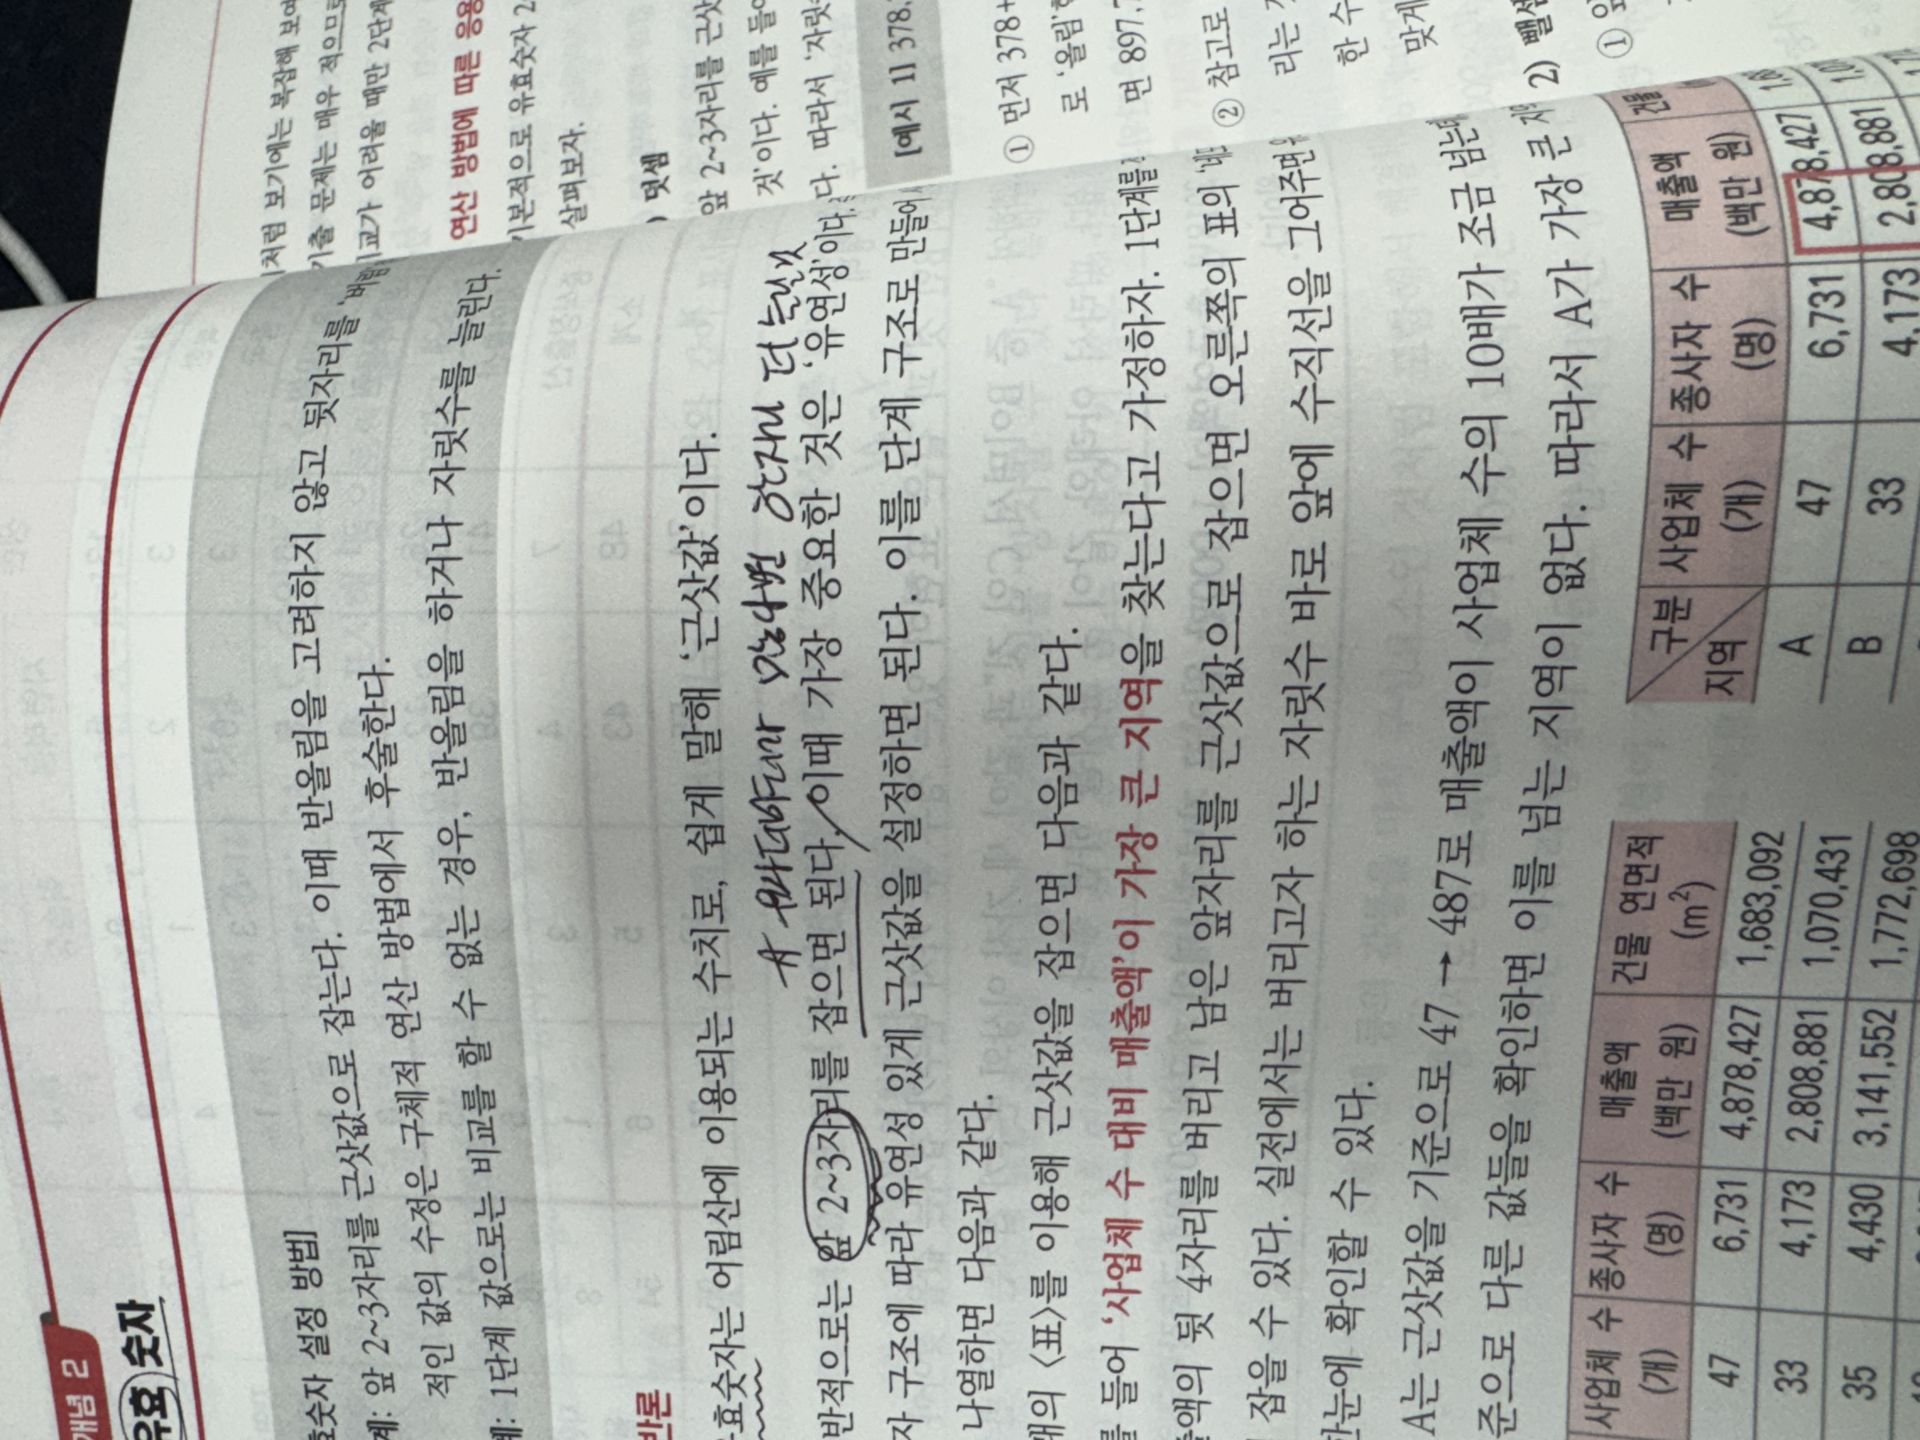 개념 2
유효숫자
효숫자 설정 방법]
계: 앞 2~3자리를 근삿값으로 잡는다. 이때 반올림을 고려하지 않고 뒷자리를
적인 값의 수정은 구체적 연산 방법에서 후술한다.
계: 1단계 값으로는 비교를 할 수 없는 경우, 반올림을 하거나 자릿수를 늘린다.
반론
효숫자는 어림산에 이용되는 수치로, 쉽게 말해 '근삿값'이다.
반적으로는 앞 2~3자리를 잡으면 된다. 이때 가장 중요한 것은 '유연성'이다.
자 구조에 따라 유연성 있게 근삿값을 설정하면 된다. 이를 단계 구조로 만들어
나열하면 다음과 같다.
의 <표>를 이용해 근삿값을 잡으면 다음과 같다.
를 들어 '사업체 수 대비 매출액'이 가장 큰 지역을 찾는다고 가정하자. 1단계를
출액의 뒷 4자리를 버리고 남은 앞자리를 근삿값으로 잡으면 오른쪽의 표의
잡을 수 있다. 실전에서는 버리고자 하는 자릿수 바로 앞에 수직선을 그어주면
한눈에 확인할 수 있다.
A는 근삿값을 기준으로 47 → 487로 매출액이 사업체 수의 10배가 조금 넘는
준으로 다른 값들을 확인하면 이를 넘는 지역이 없다. 따라서 A가 가장 큰
사업체 수 (개) 종사자 수 (명) 매출액 (백만 원) 건물 연면적 (m²)
47 6,731 4,878,427 1,683,092
33 4,173 2,808,881 1,070,431
35 4,430 3,141,552 1,772,698
구분 지역 사업체 수 (개) 종사자 수 (명) 매출액 (백만 원) 건물
A 47 6,731 4,878,427
B 33 4,173 2,808,881
처럼 보기에는 복잡해 보여
기출 문제는 매우 적으므로
비교가 어려울 때만 2단계
연산 방법에 따른 응용
기본적으로 유효숫자 2
살펴보자.
) 덧셈
앞 2~3자리를 근삿
것'이다. 예를 들어
다. 따라서 '자릿수
[예시 1] 378.
① 먼저 378+
로 '올림'한
면 897.
② 참고로
리는
한 수
맞게
2) 뺄셈
① 앞